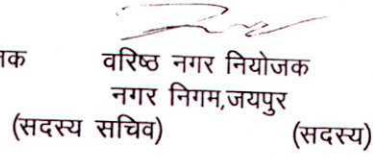 वरिष्ठ नगर नियोजक
नगर निगम,जयपुर
(सदस्य सचिव) (सदस्य)